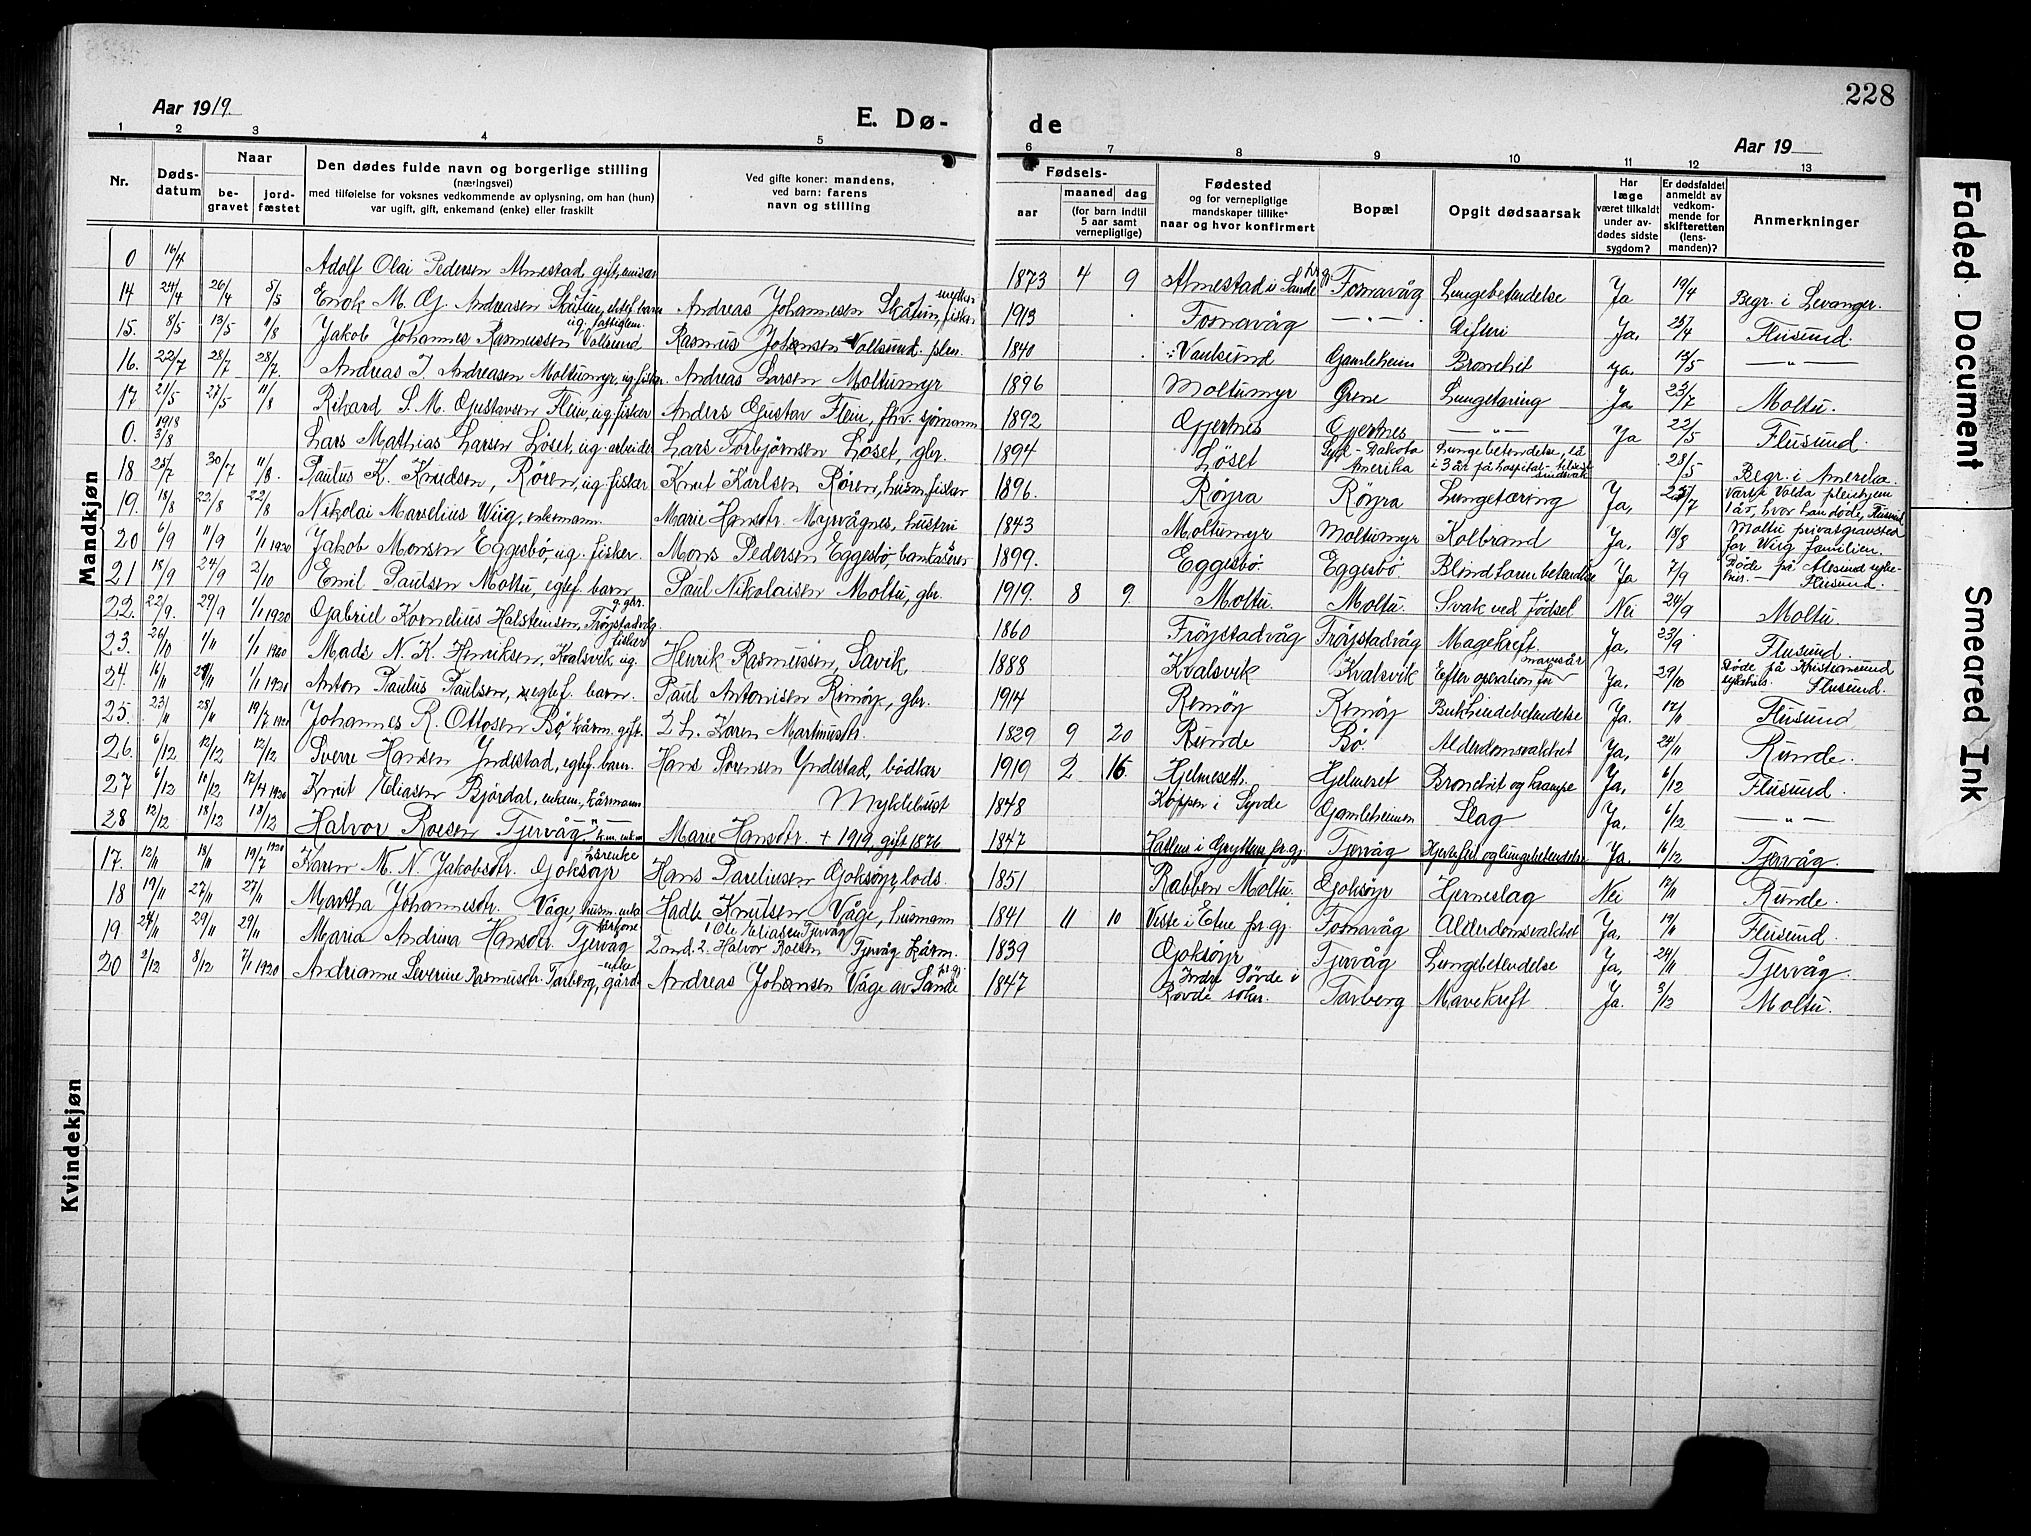 228
Aar 1919.
E. Dø-
de
Aar 19
1 2 3 4 5 6 7 8 9 10 11 12 13
Nr.
Døds-
datum
Naar
be-
gravet
jord-
fæstet
Den dødes fulde navn og borgerlige stilling
(næringsvei)
med tilføielse for voksnes vedkommende av oplysning, om han (hun)
var ugift, gift, enkemand (enke) eller fraskilt
Ved gifte koner: mandens,
ved barn: farens
navn og stilling
Fødsels-
aar
maaned dag
(for barn indtil
5 aar samt
vernepligtige)
Fødested
og for vernepligtige
mandskaper tillike
naar og hvor konfirmert
Bopæl
Opgit dødsaarsak
Har
læge
været tilkaldt
under av-
dødes sidste
sygdom?
Er dødsfaldet
anmeldt av
vedkom-
mende for
skifteretten
(lens-
manden)?
Anmerkninger
Mandkjøn
0 16/4 Adolf Olai Pedersen Almestad, gift, 1873 4 9 Almestad i Sande Fosnavåg Lungebetendelse Ja 19/4 Begr. i Levanger.
14 24/4 26/4 5/5 Enok M. G. Andreasen Skåtun, barn Andreas Johannesen Skåtun, fisker 1913 Fosnavåg — " — Difteri Ja. 28/4 Flusund.
15. 8/5 13/5 11/8 Jakob Johannes Rasmussen Volsund ug. fattiglem. Rasmus Johansen Vollsund. 1840 Gamleheim Bronchit Ja. 13/5 — " —
16. 22/7 28/7 28/7. Andreas J. Andreasen Moltumyr, ug. fisker. Andreas Larsen Moltumyr 1896 Moltumyr Grene Lungetæring Ja. 23/7 Moltu.
17 21/5 27/5 11/8 Rikard S. M. Gustavsen Flem, ug. fisker Anders Gustav Flem, fhv. sjömann 1892 Gjertnes Gjertnes — " — Ja 22/5 Flusund.
0. 1918 3/8 Lars Mathias Larsen Löset, ug. arbeider Lars Torbjörnsen Löset, gbr. 1894 Löset Dakota Amerika Lungebetendelse, lå i 3 år på hospital 28/5 Begr. i Amerika.
18 25/7 30/7 11/8. Paulus K. Knudsen, Røren, ug. fisker Knut Karlsen Røren, husm. fisker 1896. Røyra Røyra Lungetæring Ja, 25/7 Vært i Volda pleiehjem 1 år, hvor han døde, Flusund
19. 18/8 22/8 22/8 Nikolai Marselius Wiig, enkemann. Marie Hansdtr. Myrvågnes, hustru 1843 Moltumyr Moltumyr Kolbrand Ja. 18/8 Moltu privatgravsted for Wiig familien.
20 6/9 11/9 1/1 1920 Jakob Monsen Eggesbö, ug. fisker. Mons Pedersen Eggesbö, bankkasserer 1899. Eggesbö. Eggesbö Blindtarmbetendelse Ja 7/9 Døde på Ålesund sykehus. — Flusund.
21 18/9 24/9 2/10 Emil Paulsen Moltu, egtef. barn Paul Nikolaisen Moltu, gbr. 1919. 8 9 Moltu. Moltu. Svak ved födsel Nei 24/9 Moltu
22. 22/9. 29/9 1/1 1920 Gabriel Kornelius Halsteinsen, Frøystadvåg g. gbr. 1860 Frøystadvåg Frøystadvåg Magekreft. Ja. 23/9 Flusund.
23. 26/10 1/11 1/1 1920 Mads N. K. Henriksen, Kvalsvik ug. fisker Henrik Rasmussen, Savik. 1888 Kvalsvik Kvalsvik Efter operation for mavesår Ja. 29/10 Døde på Kristiansund sykehus. Flusund.
24. 16/11 21/11 1/1 1920 Anton Paulus Paulsen, egtef. barn. Paul Antonisen Remöy, gbr. 1914 Remöy Remöy Bukhindebetendelse Ja. 17/11 Flusund
25. 23/11 28/11 19/7 1920 Johannes R. Ottosen Bö, kårm. gift. 2 L. Karen Martinusdtr. 1829 9 20 Runde Bö Alderdomsvakhet Ja. 24/11 Runde.
26. 6/12 12/12 12/12 Sverre Hansen Yndestad, egtef. barn. Hans Sørensen Yndestad, bödker 1919 2 16. Hjelmeseth. Hjelmeset Bronchit og krampe Ja. 6/12 Flusund.
27 6/12 10/12 17/4 1920 Knut Eliasen Björdal, enkem. kårmann Myklebust 1848 Koppen i Syvde Gamleheimen Slag Ja. 6/12 — " —
28 12/12 18/12 18/12 Halvor Roesen Tjervåg, k.m. enkem. Marie Hansdtr. + 1919, gift 1876 1847 Hatlem i Grytten pr.gj. Tjervåg Hjertefeil og lungebetendelse Ja. 16/12 Tjervåg.
Kvindekjøn
17. 12/11 18/11 19/7 1920 Karen M. N. Jakobsdtr. Gjoksöyr kårenke Hans Pareliussen Gjoksöyr, lods. 1851 Rabben Moltu. Gjoksöyr Hjerneslag Nei 12/11 Runde.
18 19/11 27/11 27/11 Martha Johannesdtr. Våge, husm. enke Hadle Knutsen Våge, husmann 1841 11 10 Viste i Etne pr.gj. Fosnavåg Alderdomsvakhet Ja. 19/11 Flusund.
19 24/11 29/11 29/11 Maria Andrina Hansdtr. Tjervåg kårkone 1 Ole Eliasen Tjervåg 2 md. 2. Halvor Roesen Tjervåg kårm. 1839 Gjoksöyr Tjervåg Lungebetendelse Ja. 24/11 Tjervåg.
20 2/12 8/12 7/1 1920 Andrianne Severine Rasmusdtr. Tarberg, enke Andreas Johansen Våge av Sande pr.gj. 1847 Indre Rovde i Rovde sokn. Tarberg Mavekreft Ja. 3/12 Moltu.
Faded Document
Smeared Ink